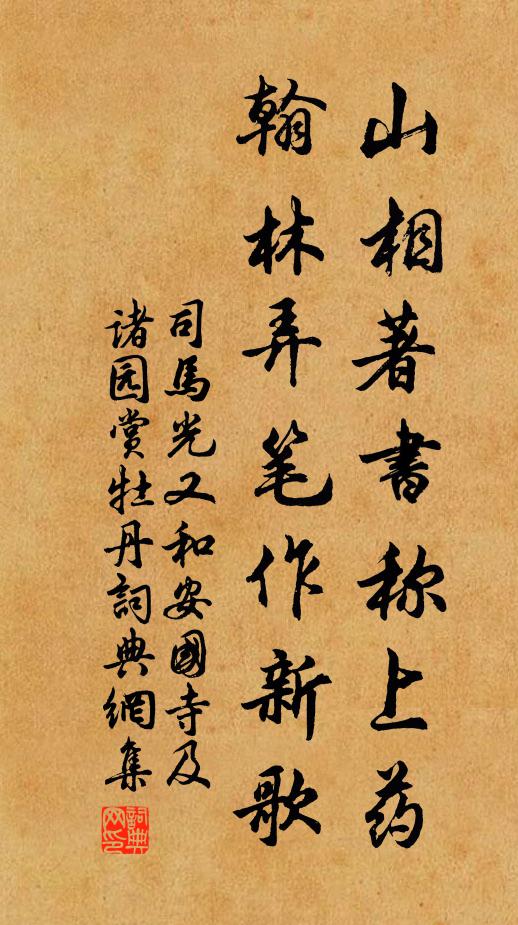 山相著書称上药
翰林弄笔作新歌
司馬光又和安國寺及
诸园赏牡丹詞典網集
詞典网印